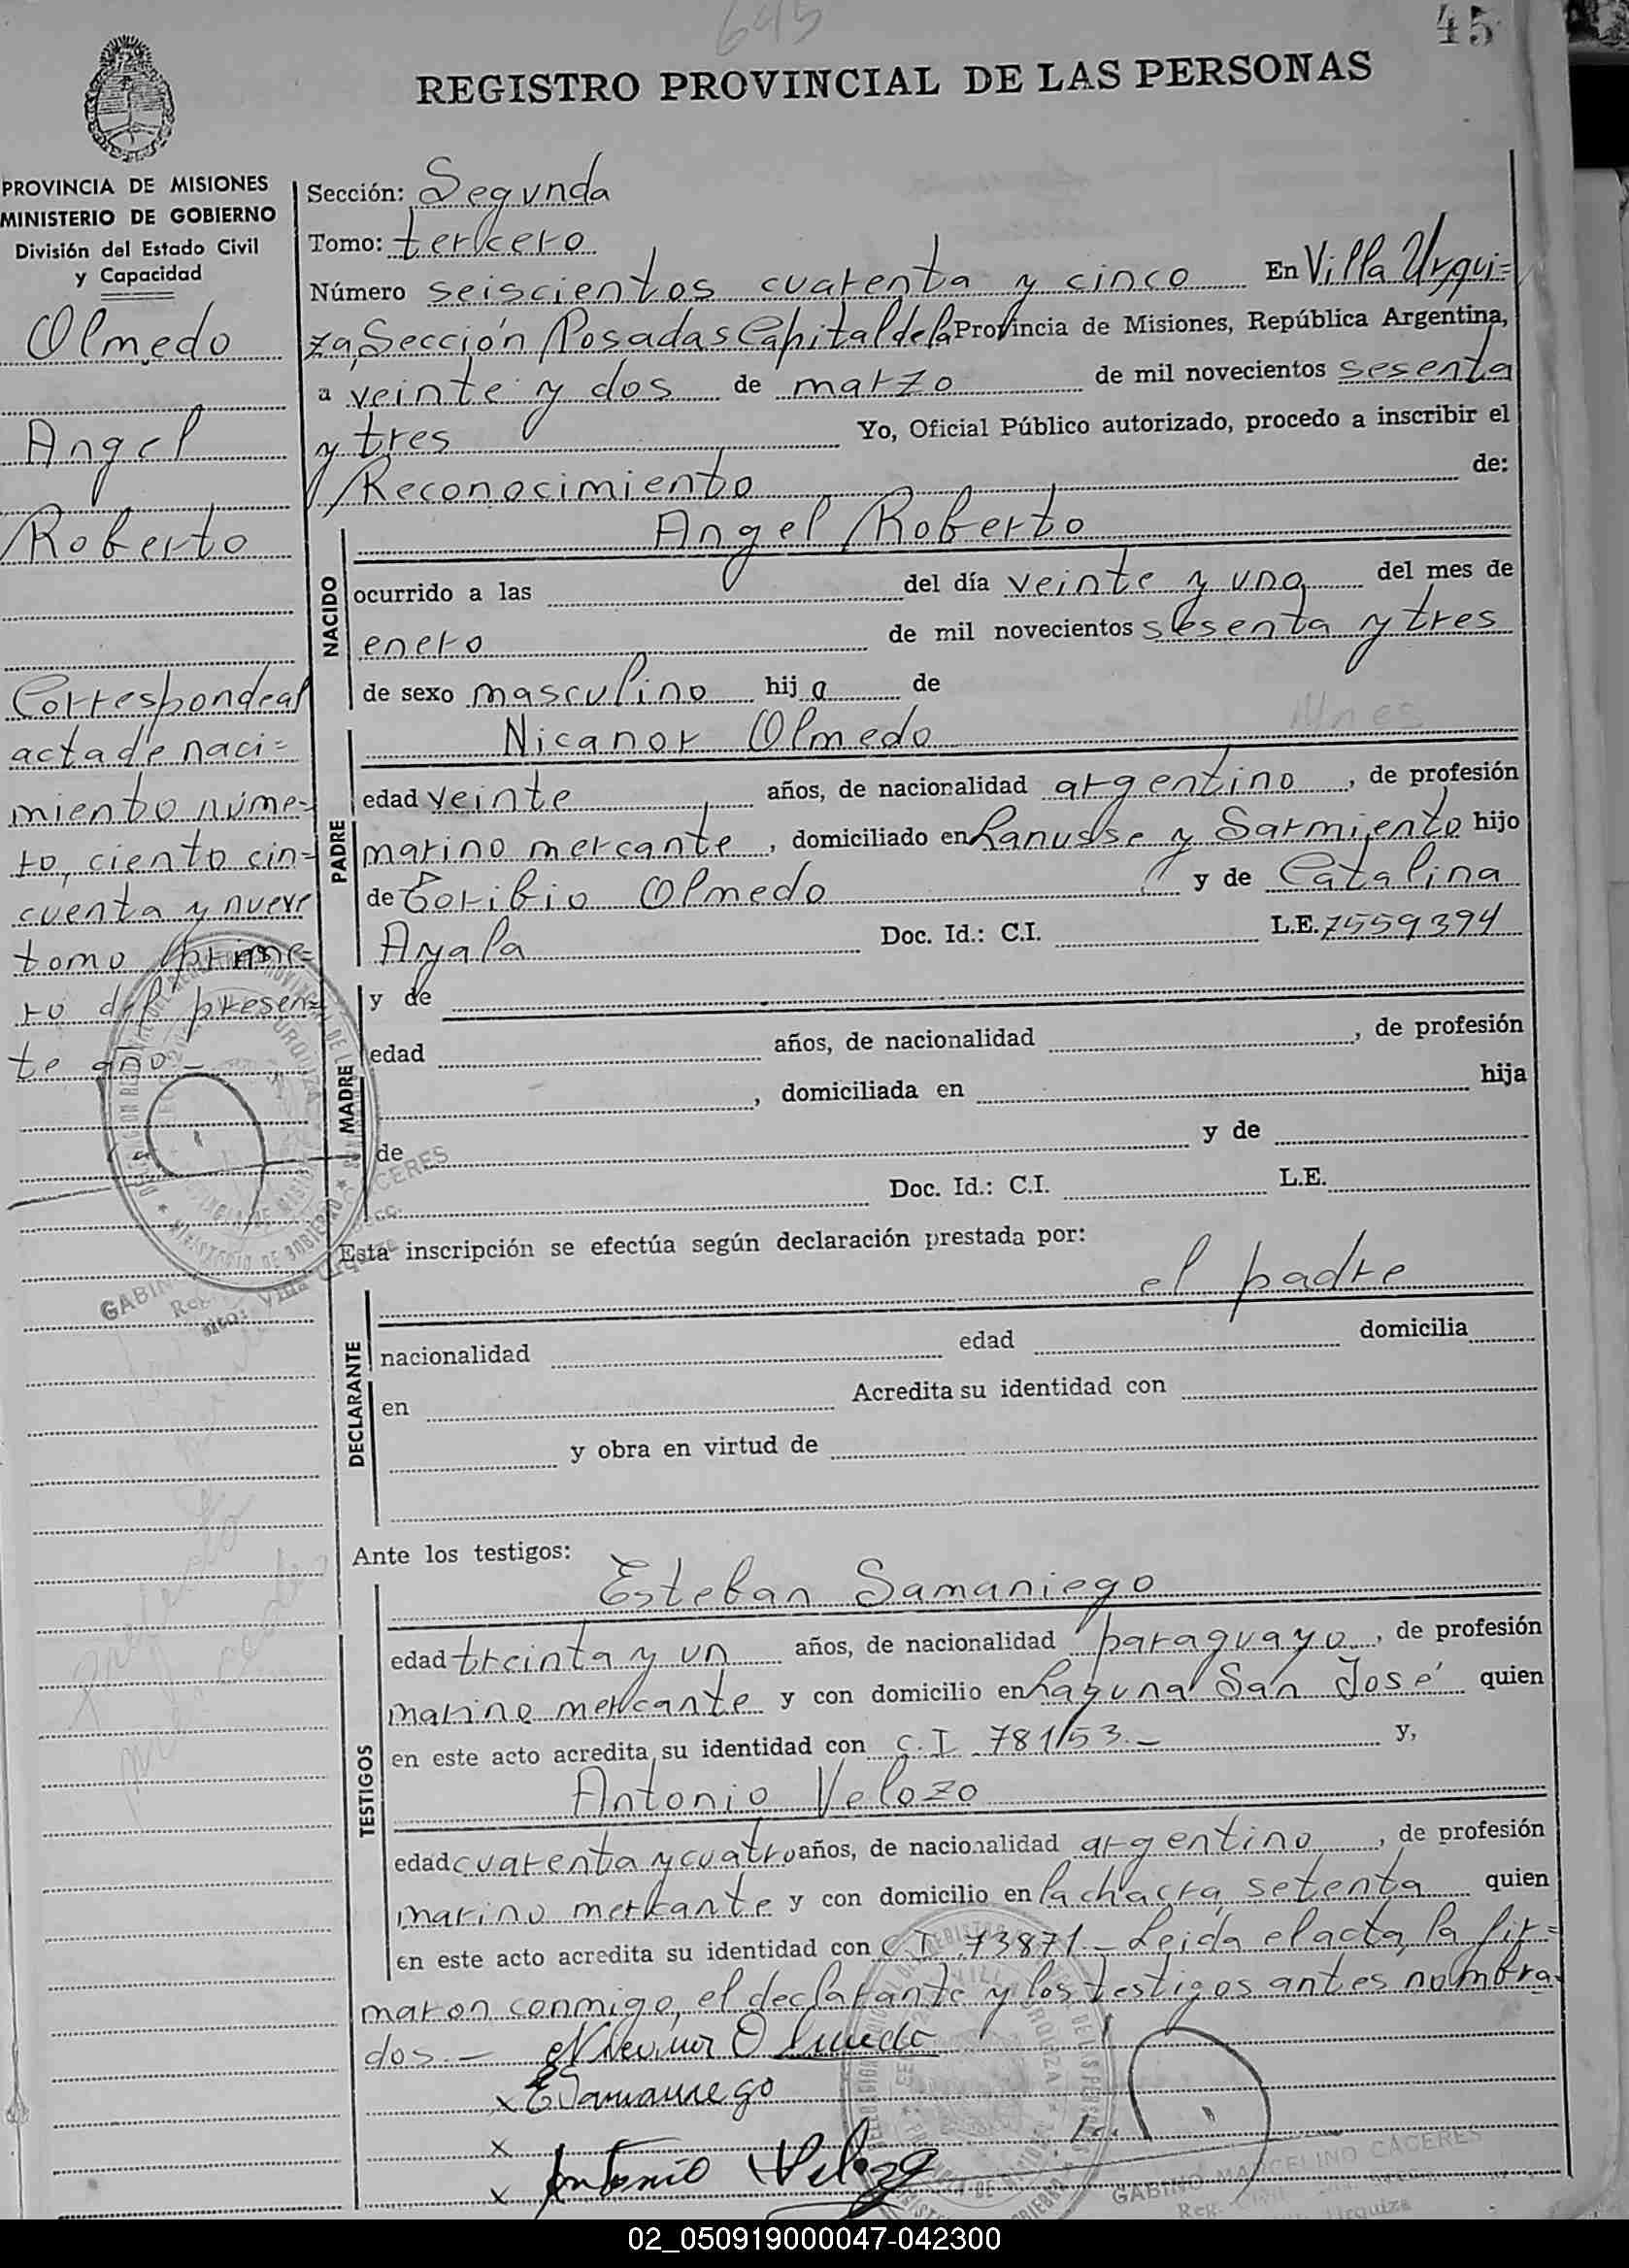 645
45
REGISTRO PROVINCIAL DE LAS PERSONAS
PROVINCIA DE MISIONES
MINISTERIO DE GOBIERNO
División del Estado Civil
y Capacidad
Olmedo
Angel
Roberto
Correspondeal
acta de naci=
miento núme=
ro, ciento cin=
cuenta y nueve
tomo prime=
ro del presen=
te año.-
Sección: Segunda
Tomo: tercero
Número seiscientos cuarenta y cinco En Villa Urqui=
za, Sección Posadas Capital de la Provincia de Misiones, República Argentina,
a veinte y dos de marzo de mil novecientos sesenta
y tres Yo, Oficial Público autorizado, procedo a inscribir el
Reconocimiento de:
NACIDO
Angel Roberto
ocurrido a las del día veinte y uno del mes de
enero de mil novecientos sesenta y tres
de sexo masculino hijo de
PADRE
Nicanor Olmedo
edad veinte años, de nacionalidad argentino, de profesión
marino mercante, domiciliado en Lanusse y Sarmiento hijo
de Toribio Olmedo y de Catalina
Ayala Doc. Id.: C.I. L.E. 7559394
MADRE
y de
edad años, de nacionalidad , de profesión
, domiciliada en hija
de y de
Doc. Id.: C.I. L.E.
Esta inscripción se efectúa según declaración prestada por:
DECLARANTE
el padre
nacionalidad edad domicilia
en Acredita su identidad con
y obra en virtud de
Ante los testigos:
TESTIGOS
Esteban Samaniego
edad treinta y un años, de nacionalidad paraguayo, de profesión
marino mercante y con domicilio en Laguna San José quien
en este acto acredita su identidad con C.I 78153.- y,
Antonio Velozo
edad cuarenta y cuatro años, de nacionalidad argentino, de profesión
marino mercante y con domicilio en la chacra setenta quien
en este acto acredita su identidad con C.I. 73871.- Leida el acta, la fir=
maron conmigo, el declarante y los testigos antes nombra=
dos.- Nicanor Olmedo
x ESamaniego
x
x Antonio Velozo
GABINO MARCELINO CACERES
02_050919000047-042300